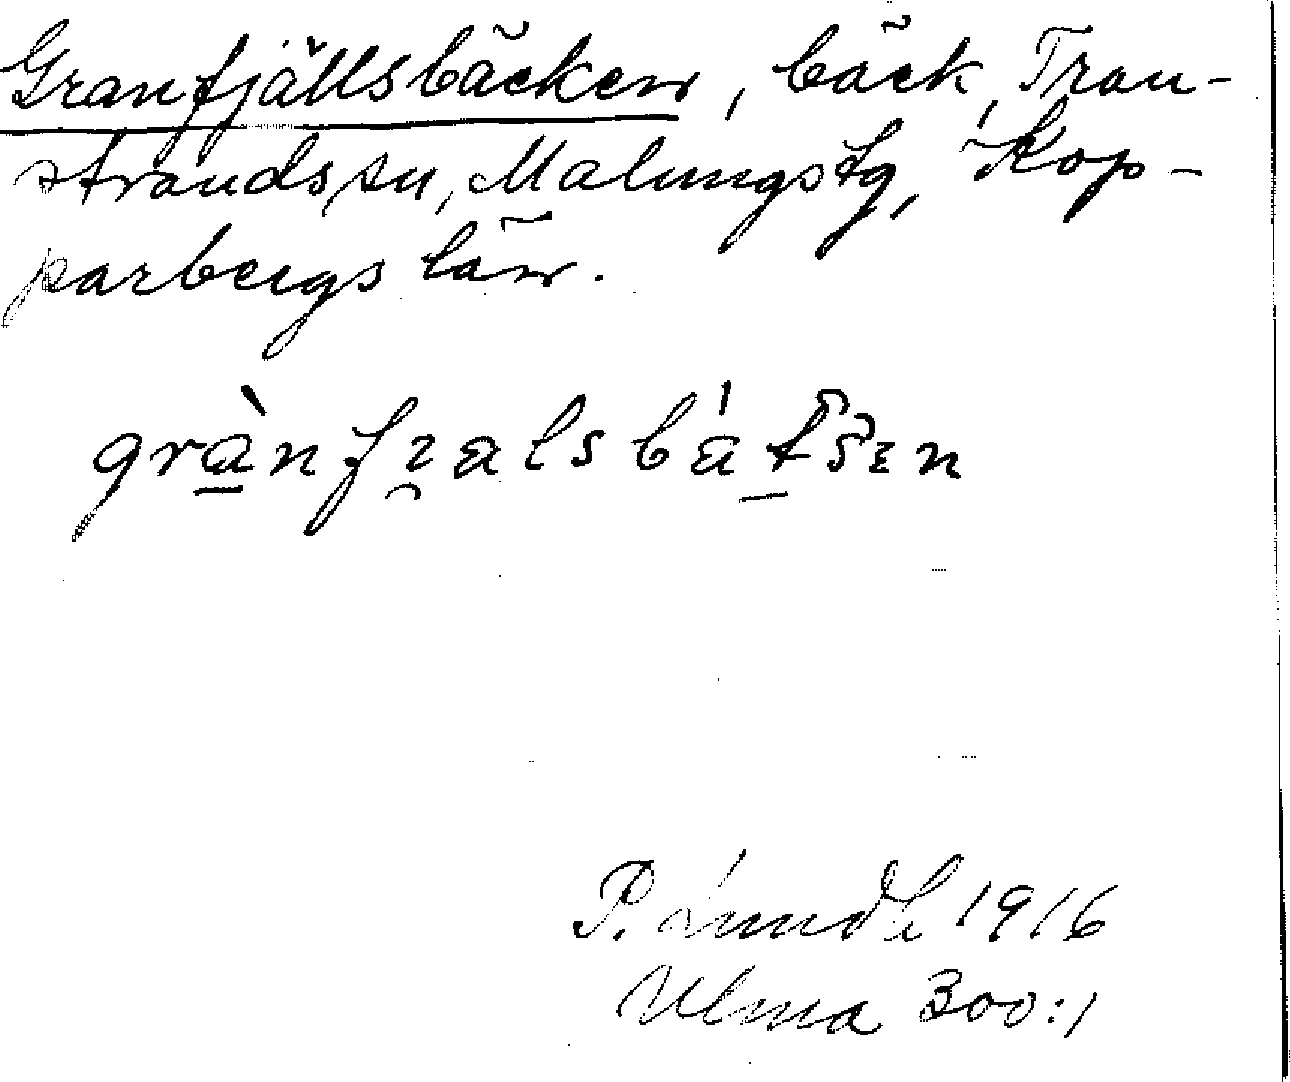 Granfjällsbäcken, bäck, Tran-
strands sn, Malungs tg, Kop-
parbergs län.
grànfɿalsbátšɛn
P. Lindh 1916
Ulma 300:1